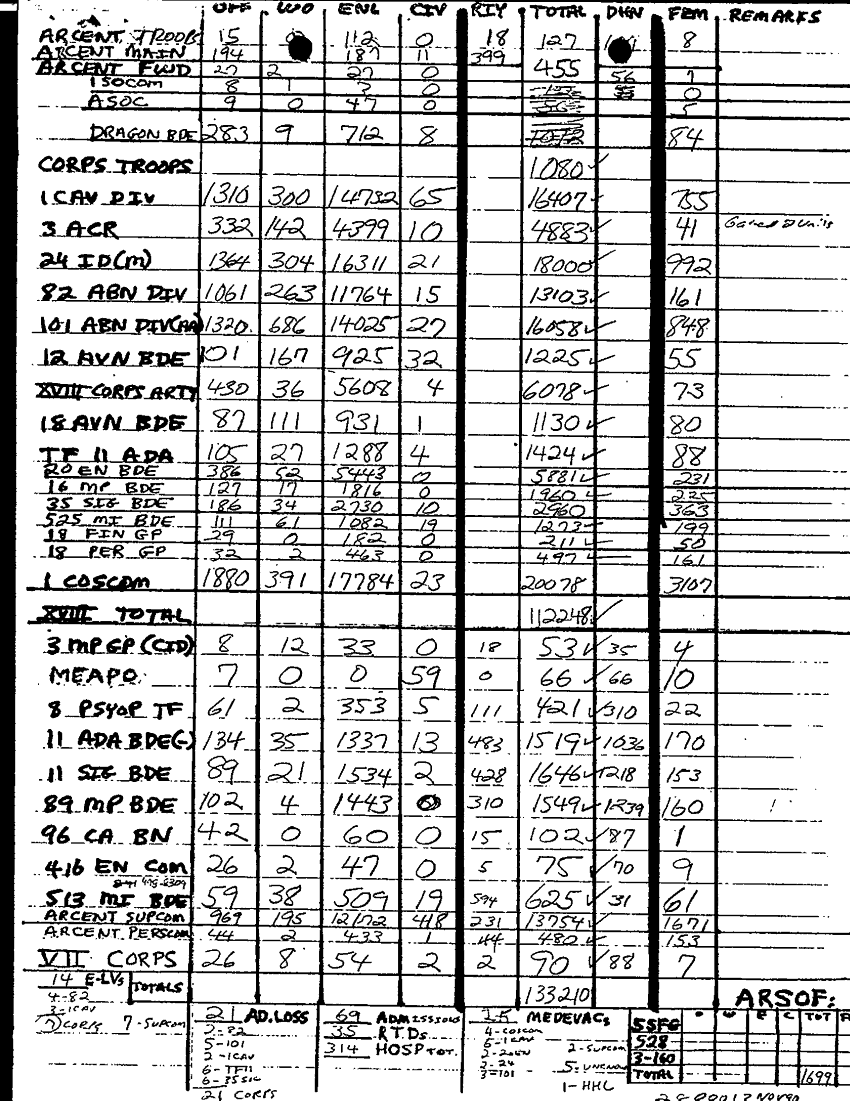 OFF WO ENL CIV RIY TOTAL DHN FEM REMARKS
ARCENT TROOPS 15 112 0 18 127 8
ARCENT MAIN 194 187 11 399
ARCENT FWD 27 2 27 0 455 56 7
1SOCOM 8 1 3 0 0
ASOC 9 0 47 0 5
DRAGON BDE 283 9 712 8 84
CORPS TROOPS 1080✓
1 CAV DIV 1310 300 14732 65 16407✓
3 ACR 332 142 4399 10 4883✓ 41
24 ID(M) 1364 304 16311 21 18000✓ 992
82 ABN DIV 1061 263 11764 15 13103✓ 161
101 ABN DIV(AA) 1320 686 14025 27 16058✓ 848
12 AVN BDE 101 167 925 32 1225✓ 55
XVIII CORPS ARTY 430 36 5608 4 6078✓ 73
18 AVN BDE 87 111 931 1 1130✓ 80
TF 11 ADA 105 27 1288 4 1424✓ 88
20 EN BDE 386 52 5443 0 5881✓ 231
16 MP BDE 127 17 1816 0 1960✓ 225
35 SIG BDE 186 34 2730 10 2960✓ 363
525 MI BDE 111 61 1082 19 1273✓ 199
18 FIN GP 29 0 182 0 211✓ 50
18 PER GP 32 2 463 0 497✓ 161
1 COSCOM 1880 391 17784 23 20078 3107
XVIII TOTAL 112248✓
3 MP GP (CID) 8 12 33 0 18 53✓ 35 4
MEAPO 7 0 0 59 0 66✓ 66 10
8 PSYOP TF 61 2 353 5 111 421✓ 310 22
11 ADA BDE(-) 134 35 1337 13 483 1519✓ 1036 170
11 SIG BDE 89 21 1534 2 428 1646✓ 1218 153
89 MP BDE 102 4 1443 0 310 1549✓ 1239 160
96 CA BN 42 0 60 0 15 102✓ 87 1
416 EN COM 26 2 47 0 5 75✓ 70 9
513 MI BDE 59 38 509 19 594 625✓ 31 61
ARCENT SUPCOM 969 195 12172 418 231 13754✓ 1671
ARCENT PERSCOM 44 2 433 1 44 480✓ 153
VII CORPS 26 8 54 2 2 90✓ 88 7
14 E-LVs TOTALS 133210
4-82
3-1CAV
7-SUPCOM
21 AD.LOSS
2-82
5-101
2-1CAV
6-TF11
6-35SIG
21 CORPS
69 ADMISSIONS
35 RTDs
314 HOSP TOT.
15 MEDEVACs
4-COSCOM
2-20EN
2-24
3-101
2-SUPCOM
5-UNKNOWN
1-HHC
ARSOF:
O W E C TOT F
5SFG
528
3-160
TOTAL 1699